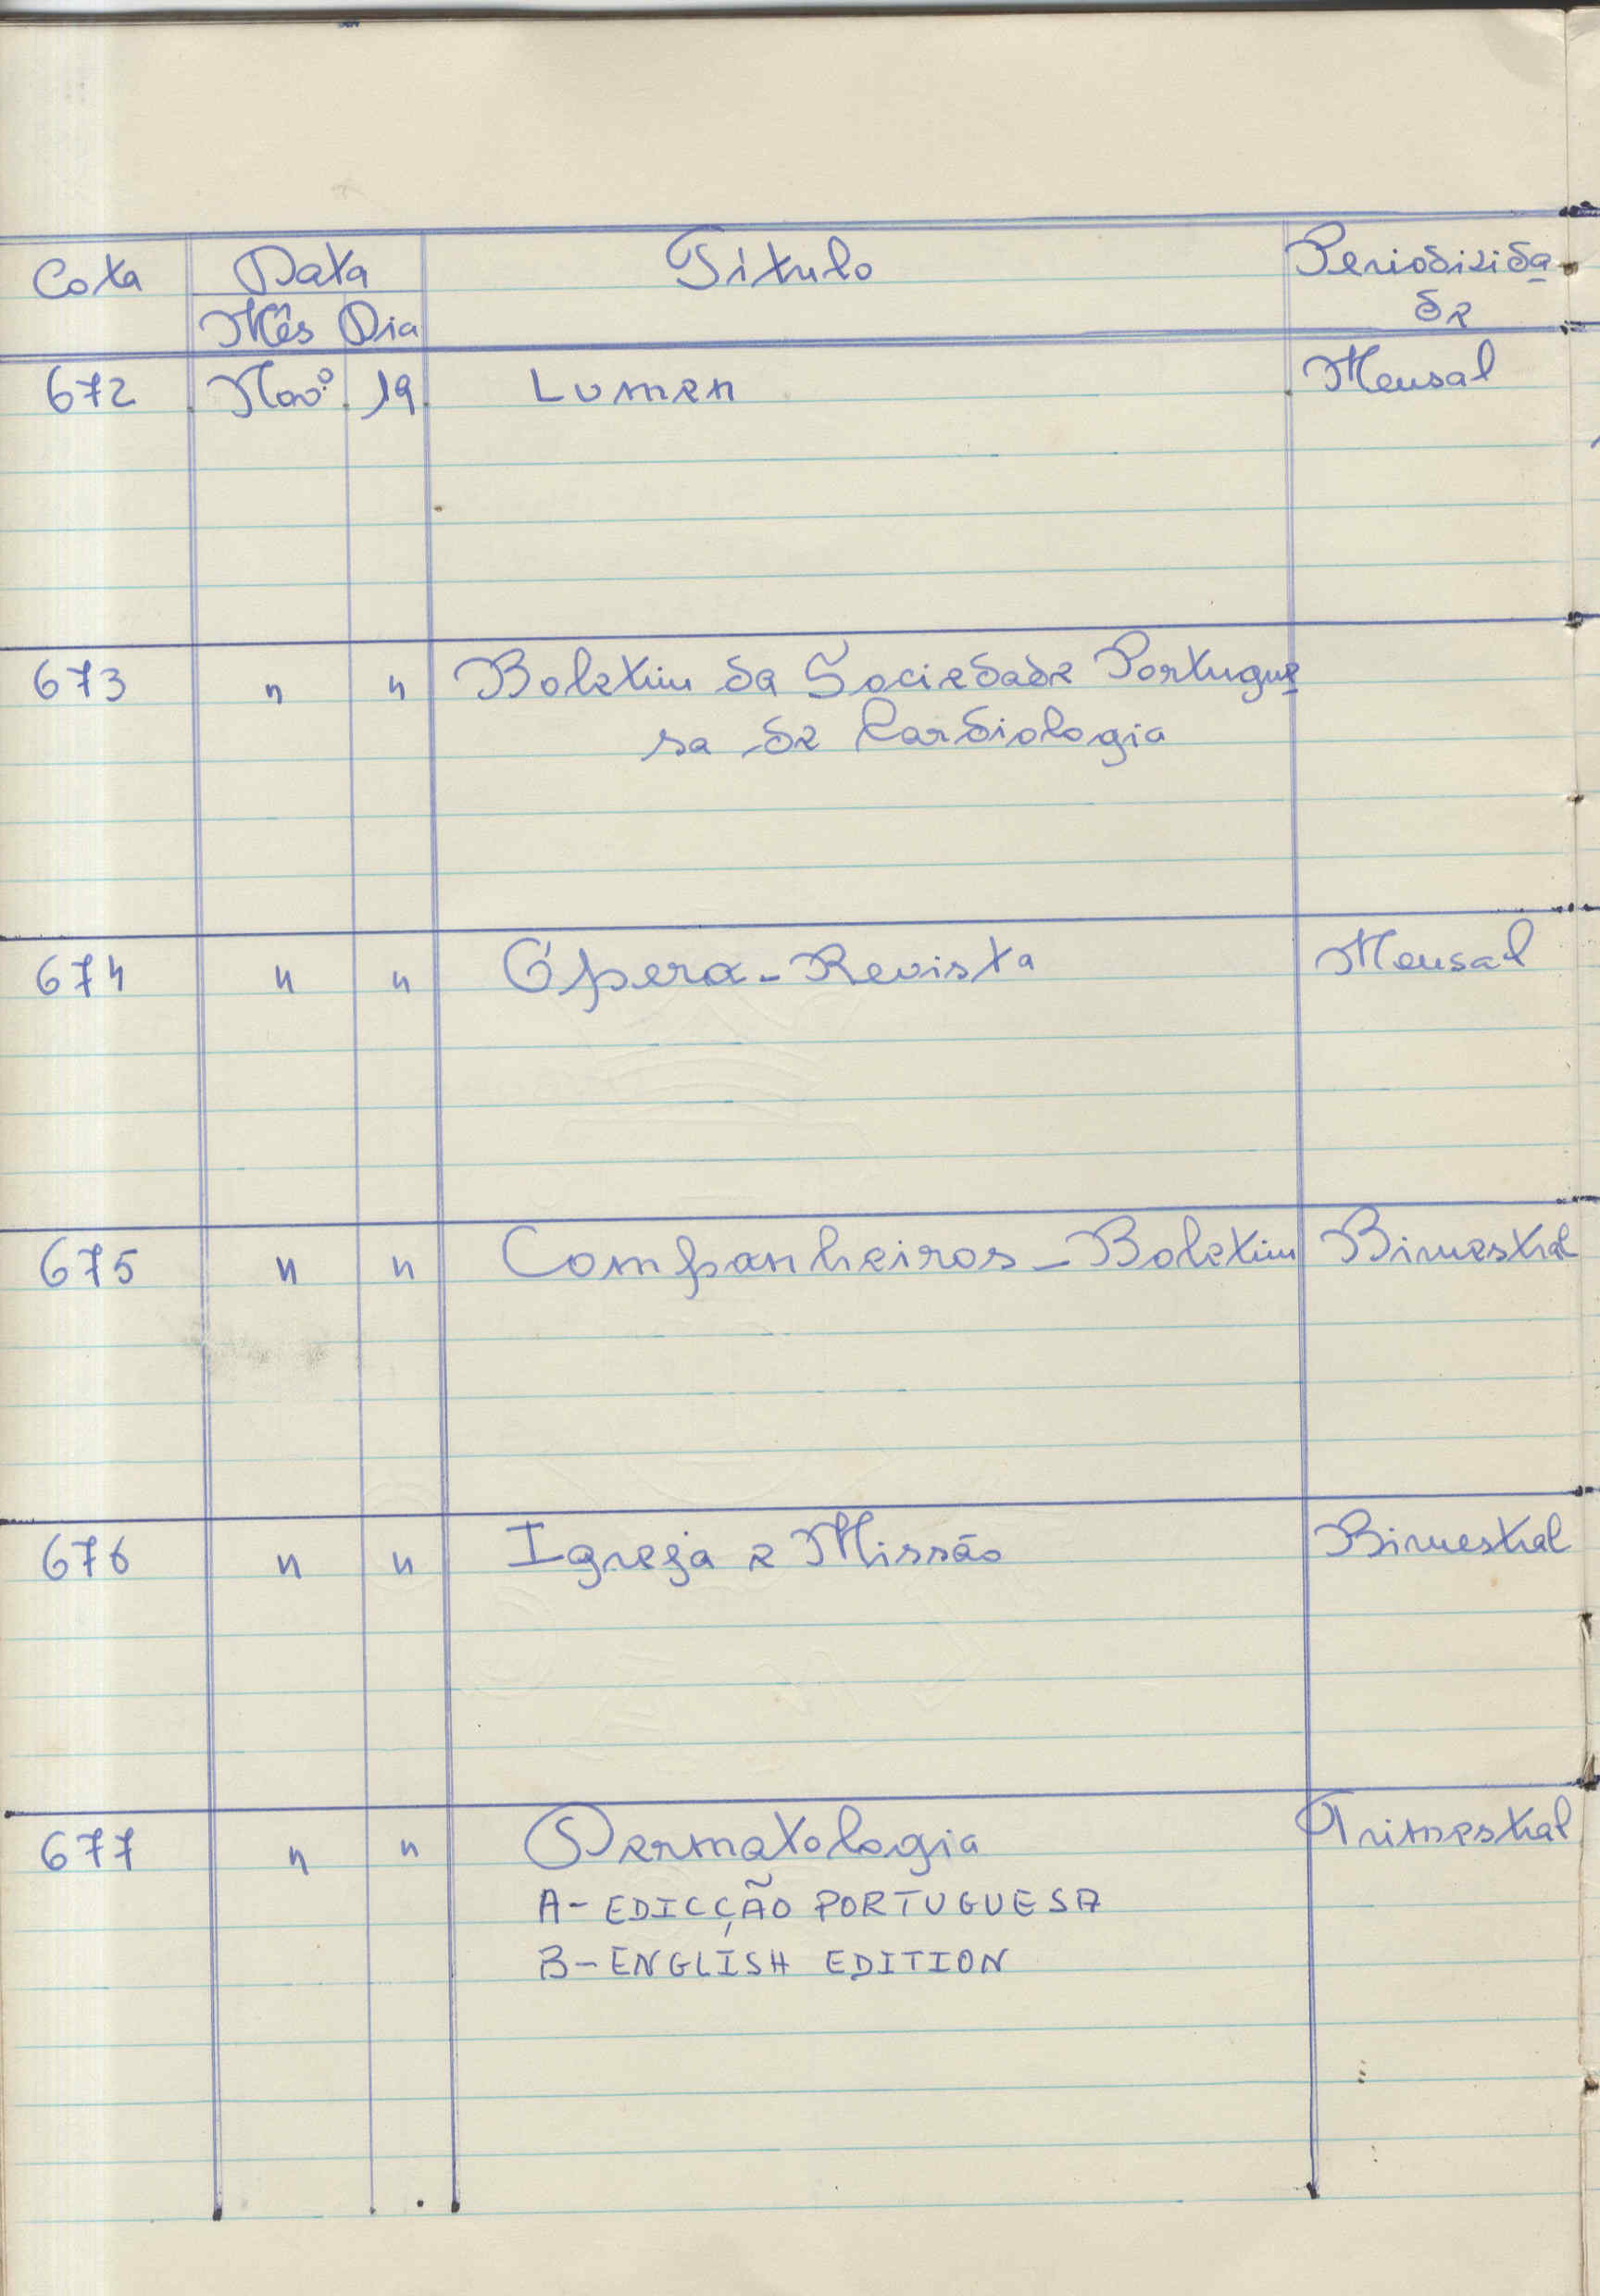 Cota Data Título Periodicida
Mês Dia de
672 Novº 19 Lumen Mensal
673 " " Boletim da Sociedade Portugue
sa de Cardiologia
674 " " Ópera - Revista Mensal
675 " " Companheiros - Boletim Bimestral
676 " " Igreja e Missão Bimestral
677 " " Dermatologia Trimestral
A - EDICÇÃO PORTUGUESA
B - ENGLISH EDITION